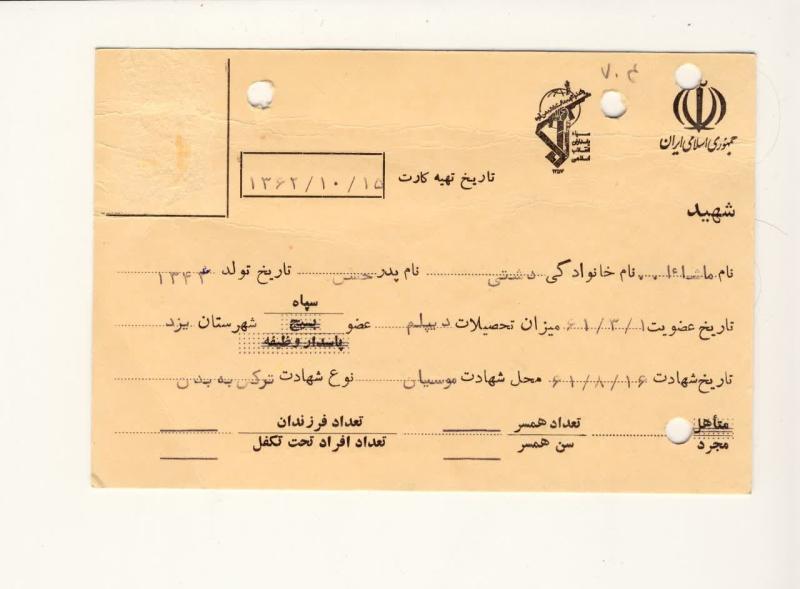 ۷۰۴
جمهوری اسلامی ایران
سپاه پاسداران انقلاب اسلامی
تاریخ تهیه کارت ۱۳۶۲/۱۰/۱۵
شهید
نام ماشاءا... نام خانوادگی دشتی نام پدر حسن تاریخ تولد ۱۳۴۳
تاریخ عضویت ۶۱/۳/۱ میزان تحصیلات دیپلم عضو سپاه بسیج پاسدار وظیفه شهرستان یزد
تاریخ شهادت ۶۱/۸/۱۶ محل شهادت موسیان نوع شهادت ترکش به بدن
متأهل تعداد همسر تعداد فرزندان
مجرد سن همسر تعداد افراد تحت تکفل